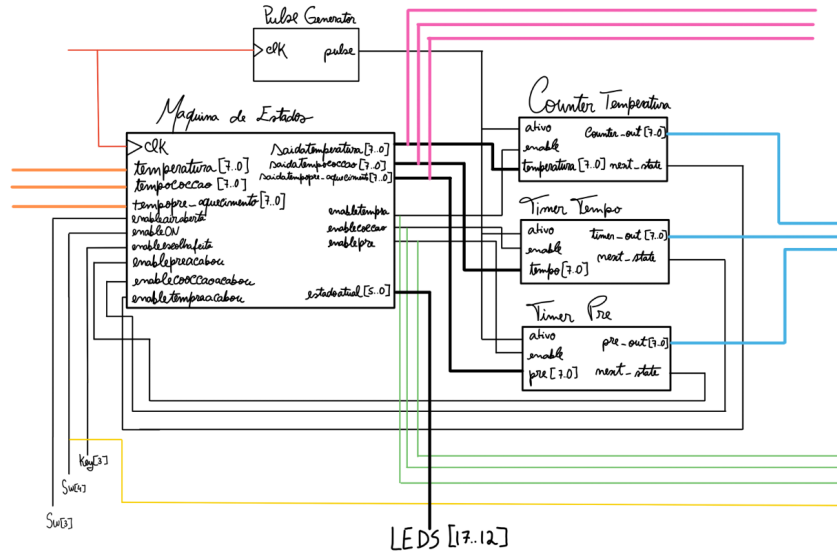 Pulse Generator
clK
pulse
Maquina de Estados
clK
temperatura [7..0]
tempococcao [7..0]
tempopre_aquecimento [7..0]
enableairaberta
enableON
enableescolhafeita
enablepreacabou
enablecoccaoacabou
enabletempraacabou
saidatemperatura [7..0]
saidatempococcao [7..0]
saidatempopre-aquecimento [7..0]
enabletempra
enablecoccao
enablepre
estadoatual [5..0]
Counter Temperatura
ativo
Counter_out [7..0]
enable
temperatura [7..0]
next_state
Timer Tempo
ativo
timer_out [7..0]
enable
next_state
tempo [7..0]
Timer Pre
ativo
pre_out [7..0]
enable
pre [7..0]
next_state
Key[3]
Sw[4]
Sw[3]
LEDS [17..12]